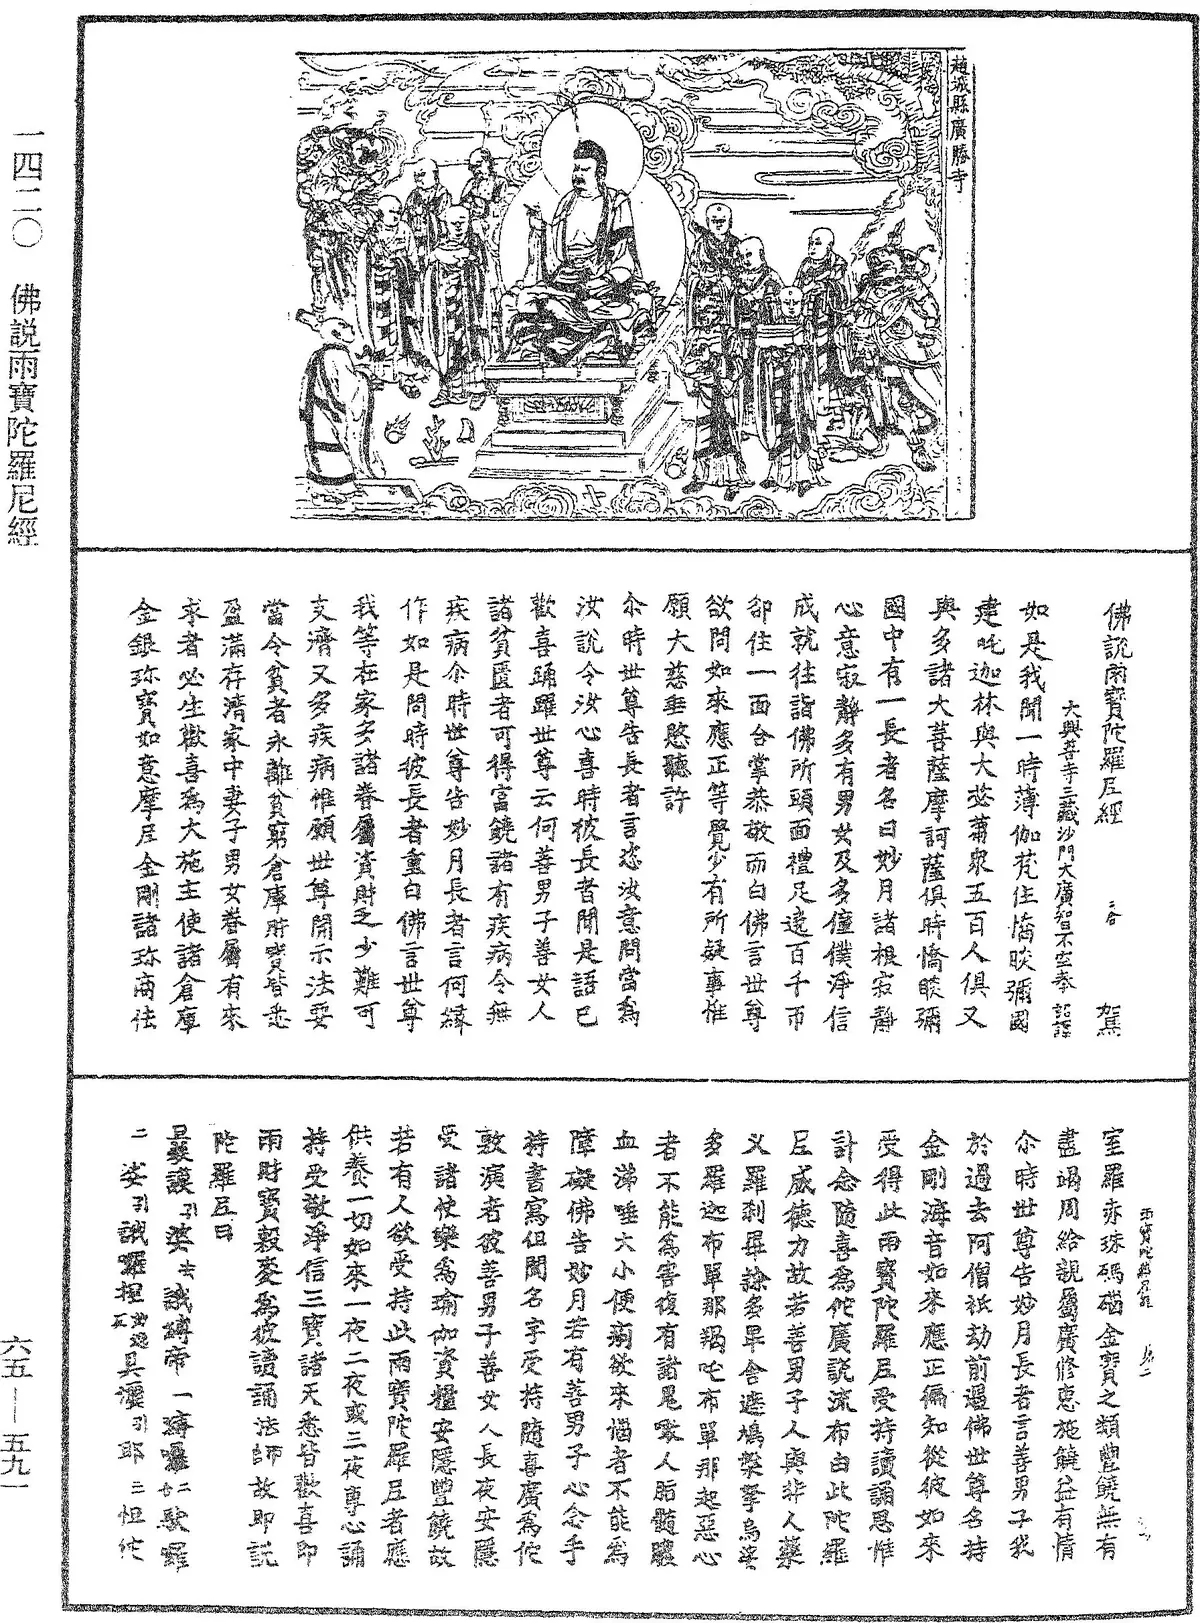 一四二〇　佛說雨寶陀羅尼經
六五—五九一
趙城縣廣勝寺
佛說雨寶陀羅尼經　駕
大興善寺三藏沙門大廣智不空奉　詔譯
如是我聞一時薄伽梵住憍睒彌國
建吒迦林與大苾蒭衆五百人俱又
與多諸大菩薩摩訶薩俱時憍睒彌
國中有一長者名曰妙月諸根寂靜
心意寂靜多有男女及多僮僕淨信
成就往詣佛所頭面禮足遶百千帀
卻住一面合掌恭敬而白佛言世尊
欲問如來應正等覺少有所疑事惟
願大慈垂愍聽許
尒時世尊告長者言恣汝意問當爲
汝說令汝心喜時彼長者聞是語已
歡喜踊躍世尊云何善男子善女人
諸貧匱者可得富饒諸有疾病令無
疾病尒時世尊告妙月長者言何緣
作如是問時彼長者重白佛言世尊
我等在家多諸眷屬資財乏少難可
支濟又多疾病惟願世尊開示法要
當令貧者永離貧窮倉庫財寶皆悉
盈滿存濟家中妻子男女眷屬有來
求者必生歡喜爲大施主使諸倉庫
金銀珎寶如意摩尼金剛諸珎商佉
雨寶陀羅尼經
室羅赤珠碼碯金寶之類豐饒無有
盡竭周給親屬廣修惠施饒益有情
尒時世尊告妙月長者言善男子我
於過去阿僧祇劫前過佛世尊名持
金剛海音如來應正徧知從彼如來
受得此雨寶陀羅尼受持讀誦思惟
計念隨喜爲佗廣說流布由此陀羅
尼威德力故若善男子人與非人藥
义羅刹畢隸多畢舍遮鳩槃拏烏娑
多羅迦布單那羯吒布單那起惡心
者不能爲害復有諸鬼噉人脂髓膿
血涕唾大小便痢欲來惱者不能爲
障礙佛告妙月若有善男子心念手
持書寫但聞名字受持隨喜廣爲佗
敷演者彼善男子善女人長夜安隱
受諸快樂爲瑜伽資糧安隱豐饒故
若有人欲受持此雨寶陀羅尼者應
供養一切如來一夜二夜或三夜專心誦
持受敬淨信三寶諸天悉皆歡喜即
雨財寶穀麥爲彼讀誦法師故即說
陀羅尼曰
曩謨引婆去誐縛帝一縛囉二合馱囉
二娑引誐囉捏具灑引耶三怛佗